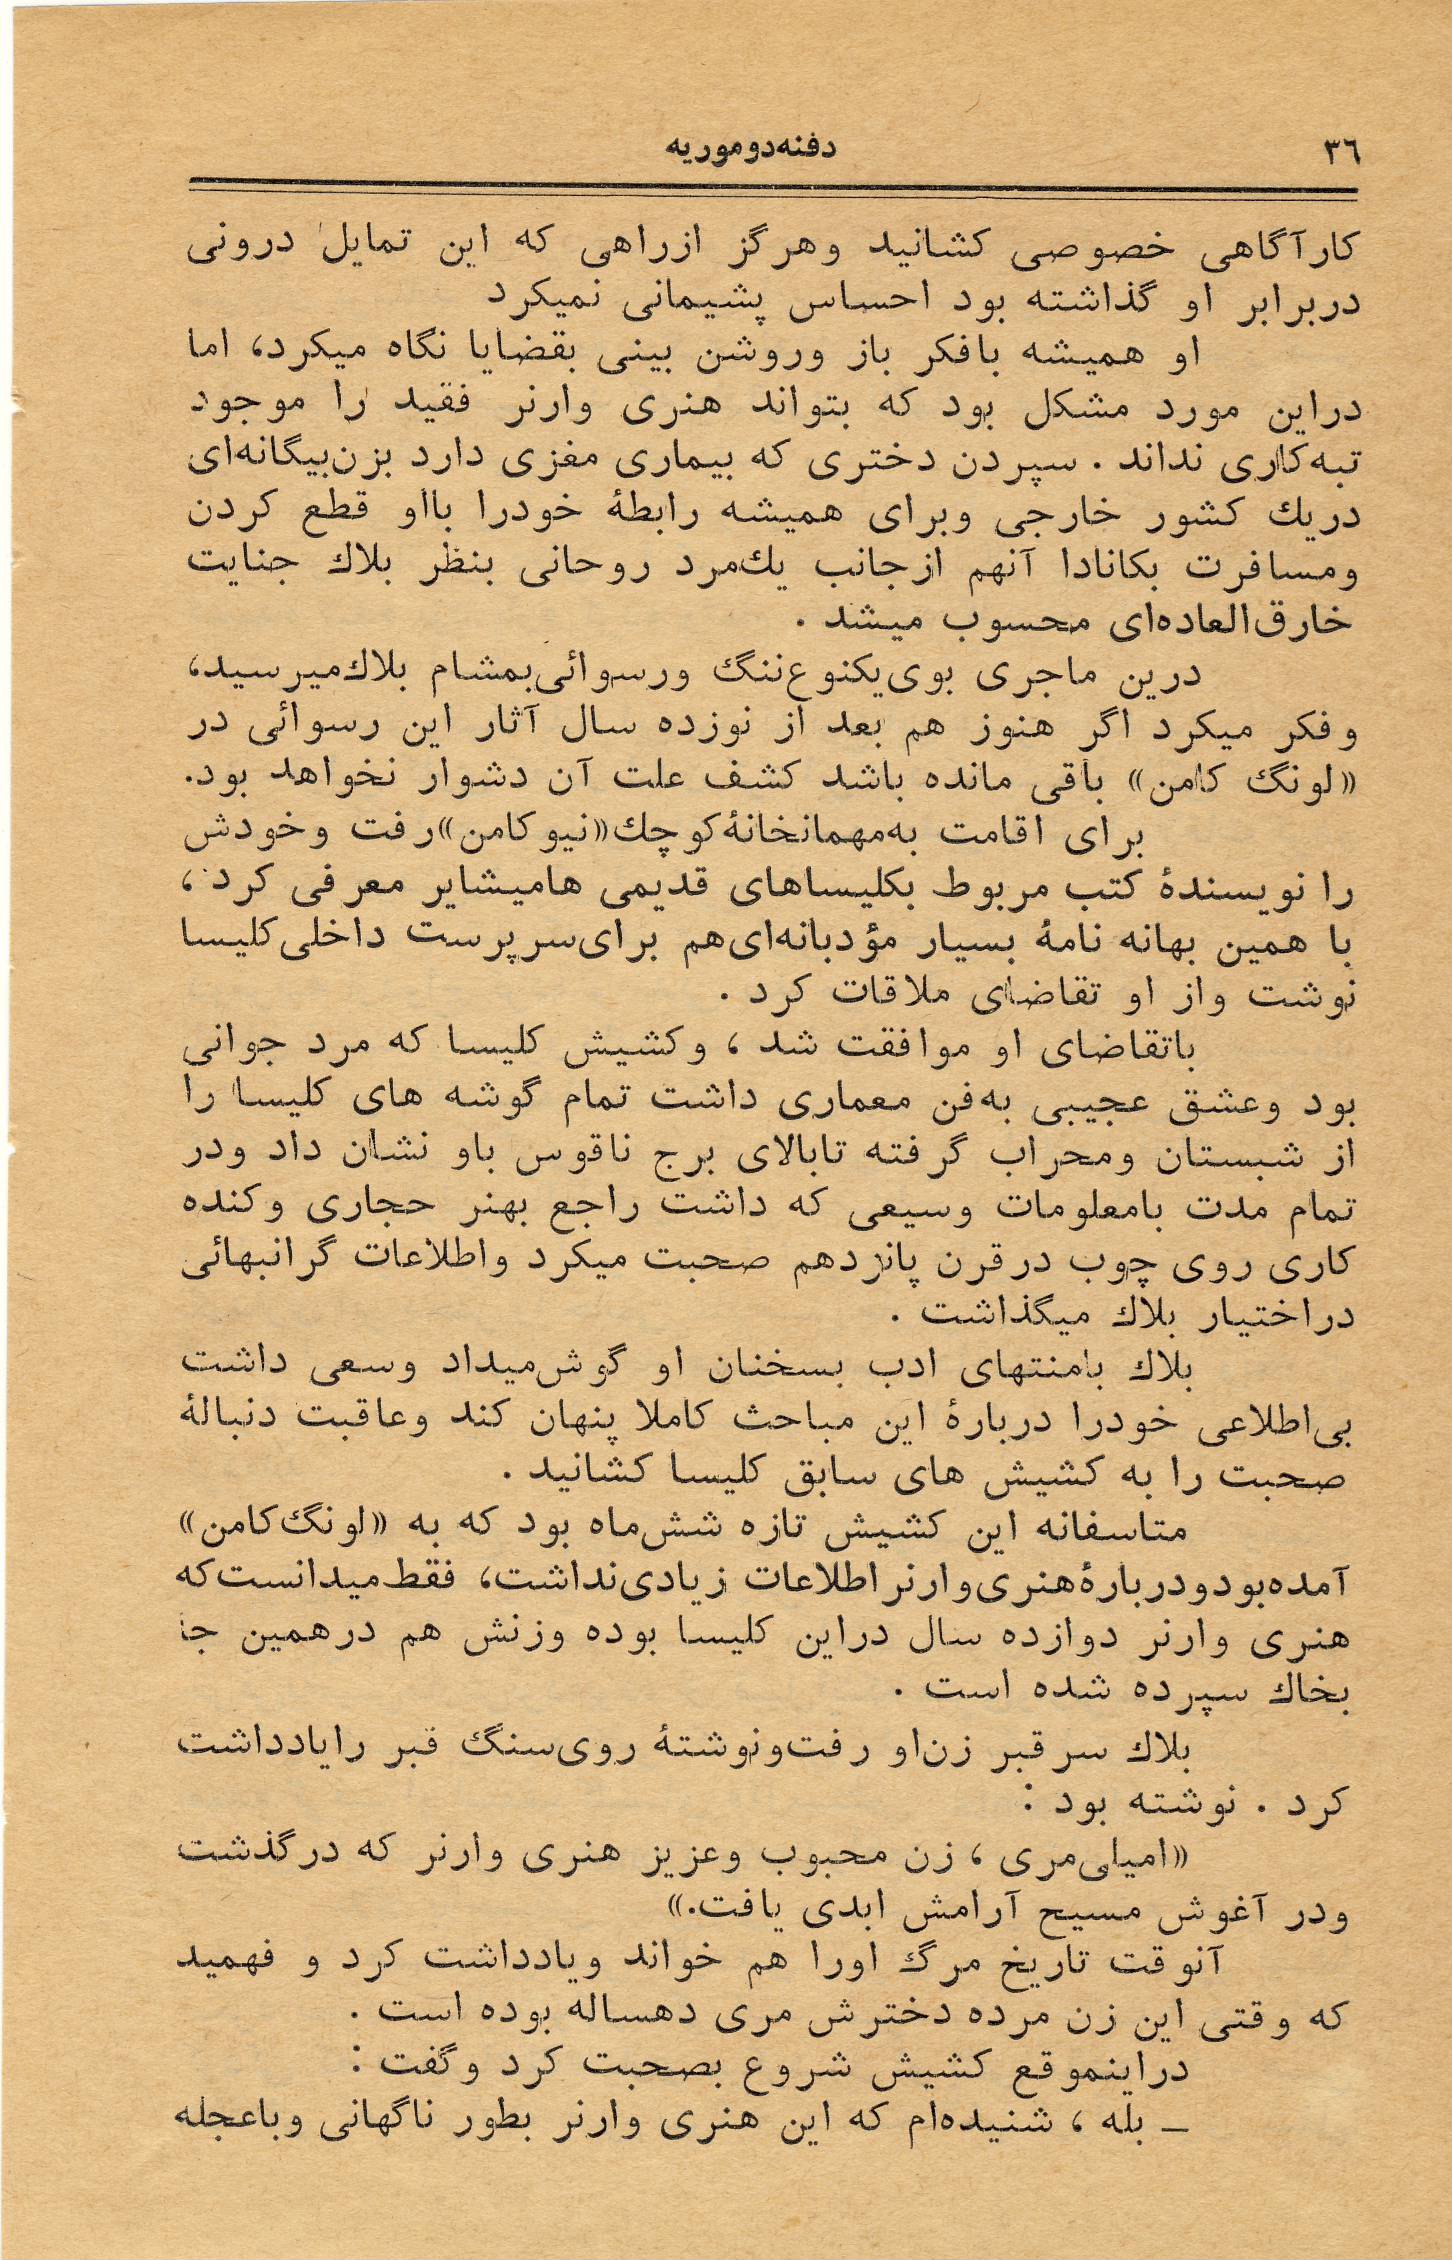 ۳۶
دفنه‌دوموریه
کارآگاهی خصوصی کشانید وهرگز ازراهی که این تمایل درونی
دربرابر او گذاشته بود احساس پشیمانی نمیکرد
او همیشه بافکر باز وروشن بینی بقضایا نگاه میکرد، اما
دراین مورد مشکل بود که بتواند هنری وارنر فقید را موجود
تبه‌کاری نداند . سپردن دختری که بیماری مغزی دارد بزن‌بیگانه‌ای
دریك کشور خارجی وبرای همیشه رابطهٔ خودرا بااو قطع کردن
ومسافرت بکانادا آنهم ازجانب یك‌مرد روحانی بنظر بلاك جنایت
خارق‌العاده‌ای محسوب میشد .
درین ماجری بوی‌یکنوع‌ننگ ورسوائی‌بمشام بلاك‌میرسید،
وفکر میکرد اگر هنوز هم بعد از نوزده سال آثار این رسوائی در
«لونگ کامن» باقی مانده باشد کشف علت آن دشوار نخواهد بود.
برای اقامت به‌مهمانخانهٔ‌کوچك«نیوکامن»رفت وخودش
را نویسندهٔ کتب مربوط بکلیساهای قدیمی هامیشایر معرفی کرد ،
با همین بهانه نامهٔ بسیار مؤدبانه‌ای‌هم برای‌سرپرست داخلی‌کلیسا
نوشت واز او تقاضای ملاقات کرد .
باتقاضای او موافقت شد ، وکشیش کلیسا که مرد جوانی
بود وعشق عجیبی به‌فن معماری داشت تمام گوشه های کلیسا را
از شبستان ومحراب گرفته تابالای برج ناقوس باو نشان داد ودر
تمام مدت بامعلومات وسیعی که داشت راجع بهنر حجاری وکنده
کاری روی چوب درقرن پانزدهم صحبت میکرد واطلاعات گرانبهائی
دراختیار بلاك میگذاشت .
بلاك بامنتهای ادب بسخنان او گوش‌میداد وسعی داشت
بی‌اطلاعی خودرا دربارهٔ این مباحث کاملا پنهان کند وعاقبت دنبالهٔ
صحبت را به کشیش های سابق کلیسا کشانید .
متاسفانه این کشیش تازه شش‌ماه بود که به «لونگ‌کامن»
آمده‌بودودربارهٔ‌هنری‌وارنراطلاعات زیادی‌نداشت، فقط‌میدانست‌که
هنری وارنر دوازده سال دراین کلیسا بوده وزنش هم درهمین جا
بخاك سپرده شده است .
بلاك سرقبر زن‌او رفت‌ونوشتهٔ روی‌سنگ قبر رایادداشت
کرد . نوشته بود :
«امیلی‌مری ، زن محبوب وعزیز هنری وارنر که درگذشت
ودر آغوش مسیح آرامش ابدی یافت.»
آنوقت تاریخ مرگ اورا هم خواند ویادداشت کرد و فهمید
که وقتی این زن مرده دخترش مری دهساله بوده است .
دراینموقع کشیش شروع بصحبت کرد وگفت :
ـ بله ، شنیده‌ام که این هنری وارنر بطور ناگهانی وباعجله